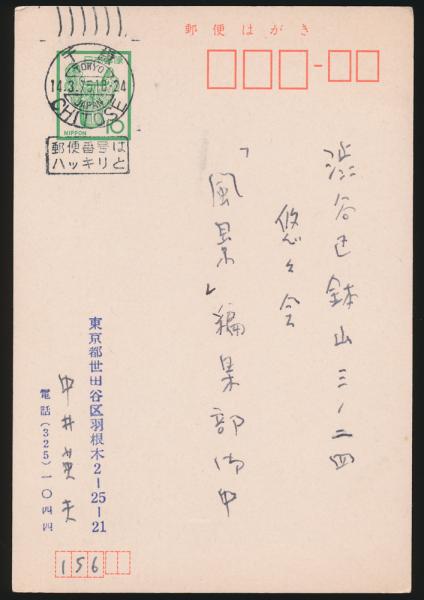 郵便はがき
千歳
TOKYO
14.3.75 18-24
JAPAN
CHITOSE
NIPPON
10
郵便番号は
ハッキリと
渋谷区鉢山三ノ二四
悠々会
「風景」編集部御中
東京都世田谷区羽根木2-25-21
中井英夫
電話(325)一〇四四
156